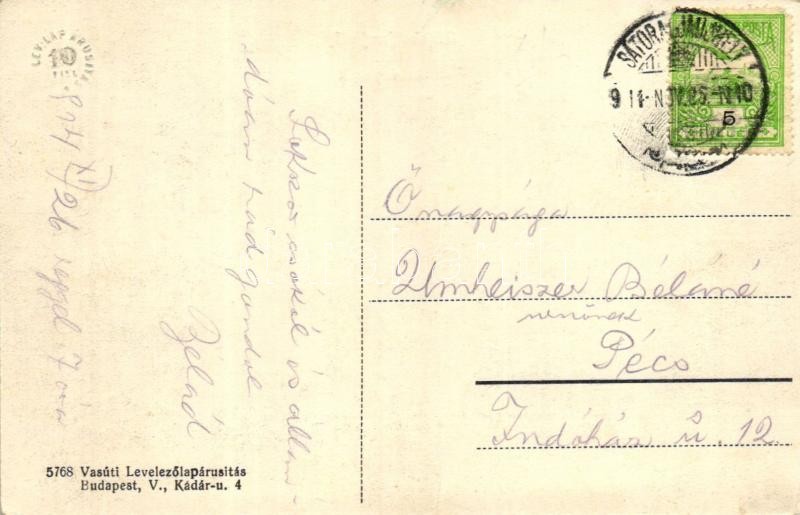 LEV. LAP ÁRUSITÁS
10
FILL
914 XI/26. reggel 7 óra
Sokszor csókol és állan-
dóan rád gondol
Bélád
5768 Vasúti Levelezőlapárusitás
Budapest, V., Kádár-u. 4
SÁTORALJAUJHELY
911-NOV.25.-N10
5
Őnagysága
Umheiszer Béláné
nenőnek
Pécs
Indóház u. 12.